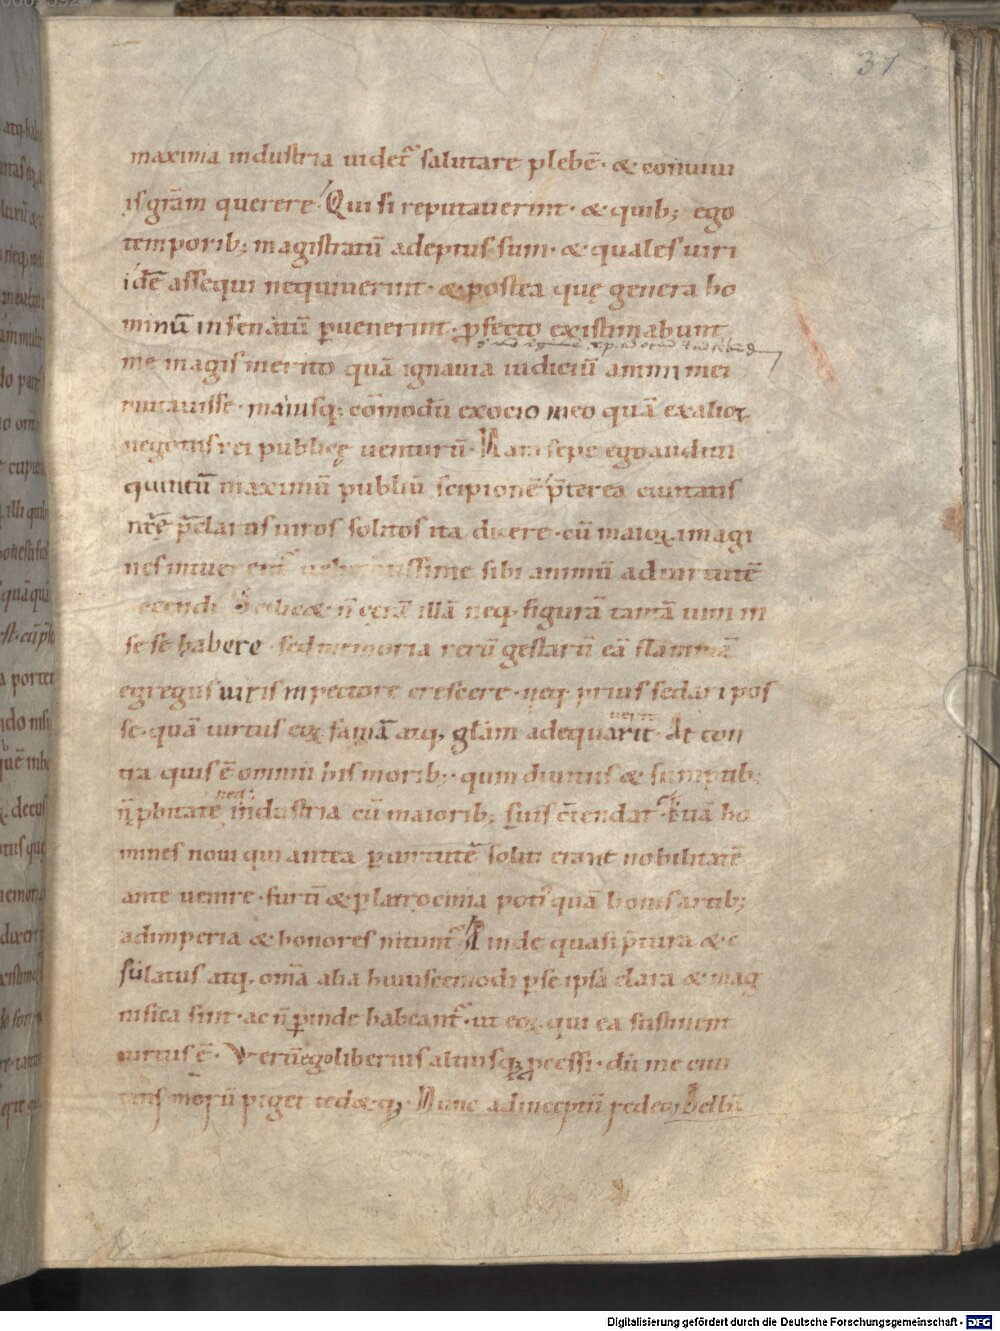 31
maxima industria uidet᷑ salutare plebē· & conuiui
is grām querere· Qui si reputauerint· & quib; ego
temporib; magistratū adeptus sum· & quales uiri
idē assequi nequiuerint· & postea quę genera ho
minū in senatū ꝑuenerint· ꝓfecto existimabunt
me magis merito quā ignauia iudiciū animi mei
mutauisse· maiusq; cōmodū ex ocio meo quā ex alioꝝ
negotiis rei publicę uenturū· Nam sepe ego audiui
quintū maximū publiū scipionē p̄terea ciuitatis
nrē p̄claros uiros solitos ita dicere· cū maioꝝ imagi
nes intuerent᷑ sibi animū ad uirtutē
Scilic& n̄ cerā illā neq; figurā tantā uim in
se se habere· sed memoria rerū gestarū eā flammā
egregiis uiris in pectore crescere· neq; prius sedari pos
se· quā uirtus eoꝝ famā atq; glām adequarit· At con
tra quis ē omniū his morib;· quin diuitiis & sumptib;
n̄ ꝓbitate neq; industria cū maiorib; suis c̄tendat᷑· Etiā ho
mines noui qui antea ꝑ uirtutē soliti erant nobilitatē
ante uenire· furtī & ꝑ latrocinia poti᷒ quā bonis artib;
ad imperia & honores nitunt᷑· Proinde quasi p̄tura & c̄
sulatus atq; omā alia huiuscemodi ꝑ se ipsa clara & mag
nifica sint· ac n̄ ꝑinde habeant᷑· ut eoꝝ qui ea sustinent
uirtus ē· Verū ego liberius altiusq; ꝓcessi· dū me ciui
tatis morū piget ted&q;· Nunc ad inceptū redeo· Bellū
Digitalisierung gefördert durch die Deutsche Forschungsgemeinschaft - DFG